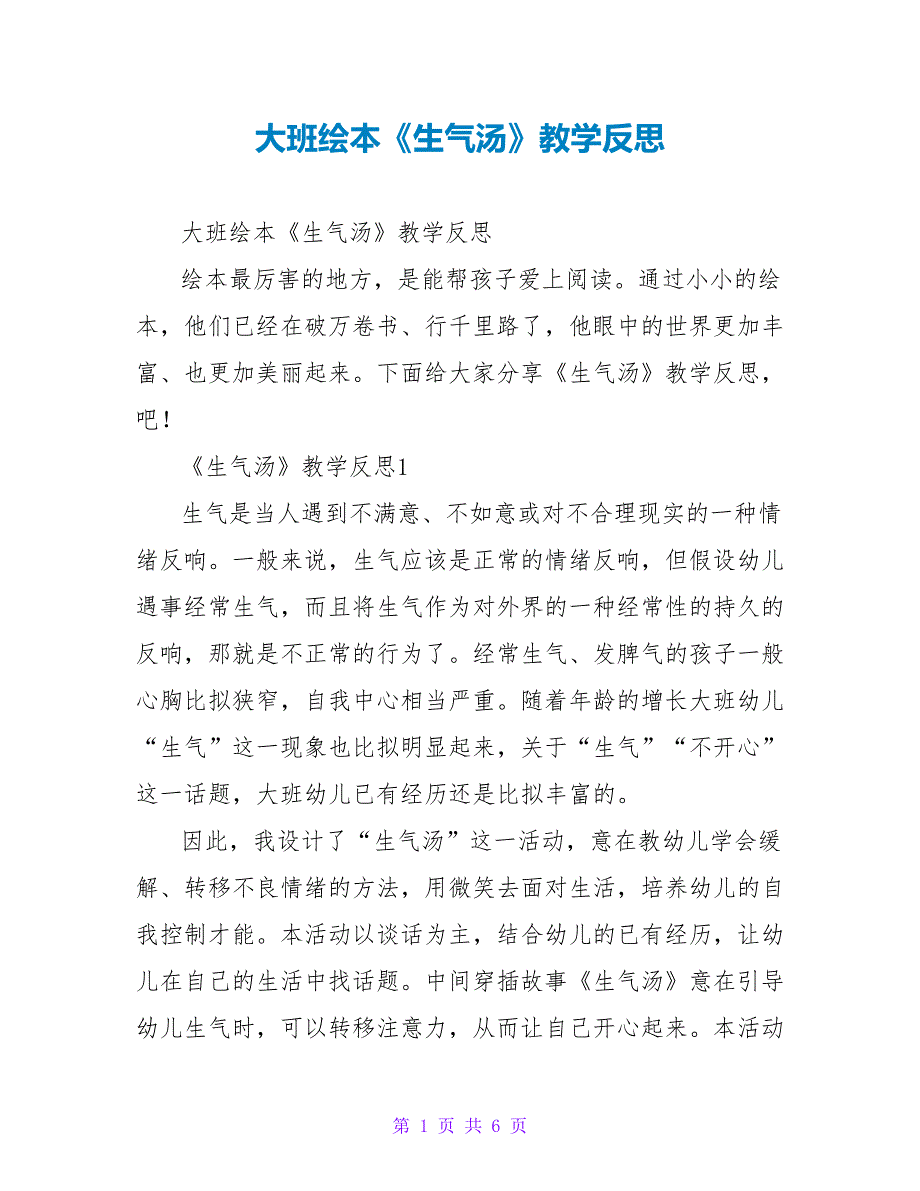 大班绘本《生气汤》教学反思
大班绘本《生气汤》教学反思
绘本最厉害的地方，是能帮孩子爱上阅读。通过小小的绘
本，他们已经在破万卷书、行千里路了，他眼中的世界更加丰
富、也更加美丽起来。下面给大家分享《生气汤》教学反思，
吧！
《生气汤》教学反思1
生气是当人遇到不满意、不如意或对不合理现实的一种情
绪反响。一般来说，生气应该是正常的情绪反响，但假设幼儿
遇事经常生气，而且将生气作为对外界的一种经常性的持久的
反响，那就是不正常的行为了。经常生气、发脾气的孩子一般
心胸比拟狭窄，自我中心相当严重。随着年龄的增长大班幼儿
“生气”这一现象也比拟明显起来，关于“生气”“不开心”
这一话题，大班幼儿已有经历还是比拟丰富的。
因此，我设计了“生气汤”这一活动，意在教幼儿学会缓
解、转移不良情绪的方法，用微笑去面对生活，培养幼儿的自
我控制才能。本活动以谈话为主，结合幼儿的已有经历，让幼
儿在自己的生活中找话题。中间穿插故事《生气汤》意在引导
幼儿生气时，可以转移注意力，从而让自己开心起来。本活动
第 1 页 共 6 页